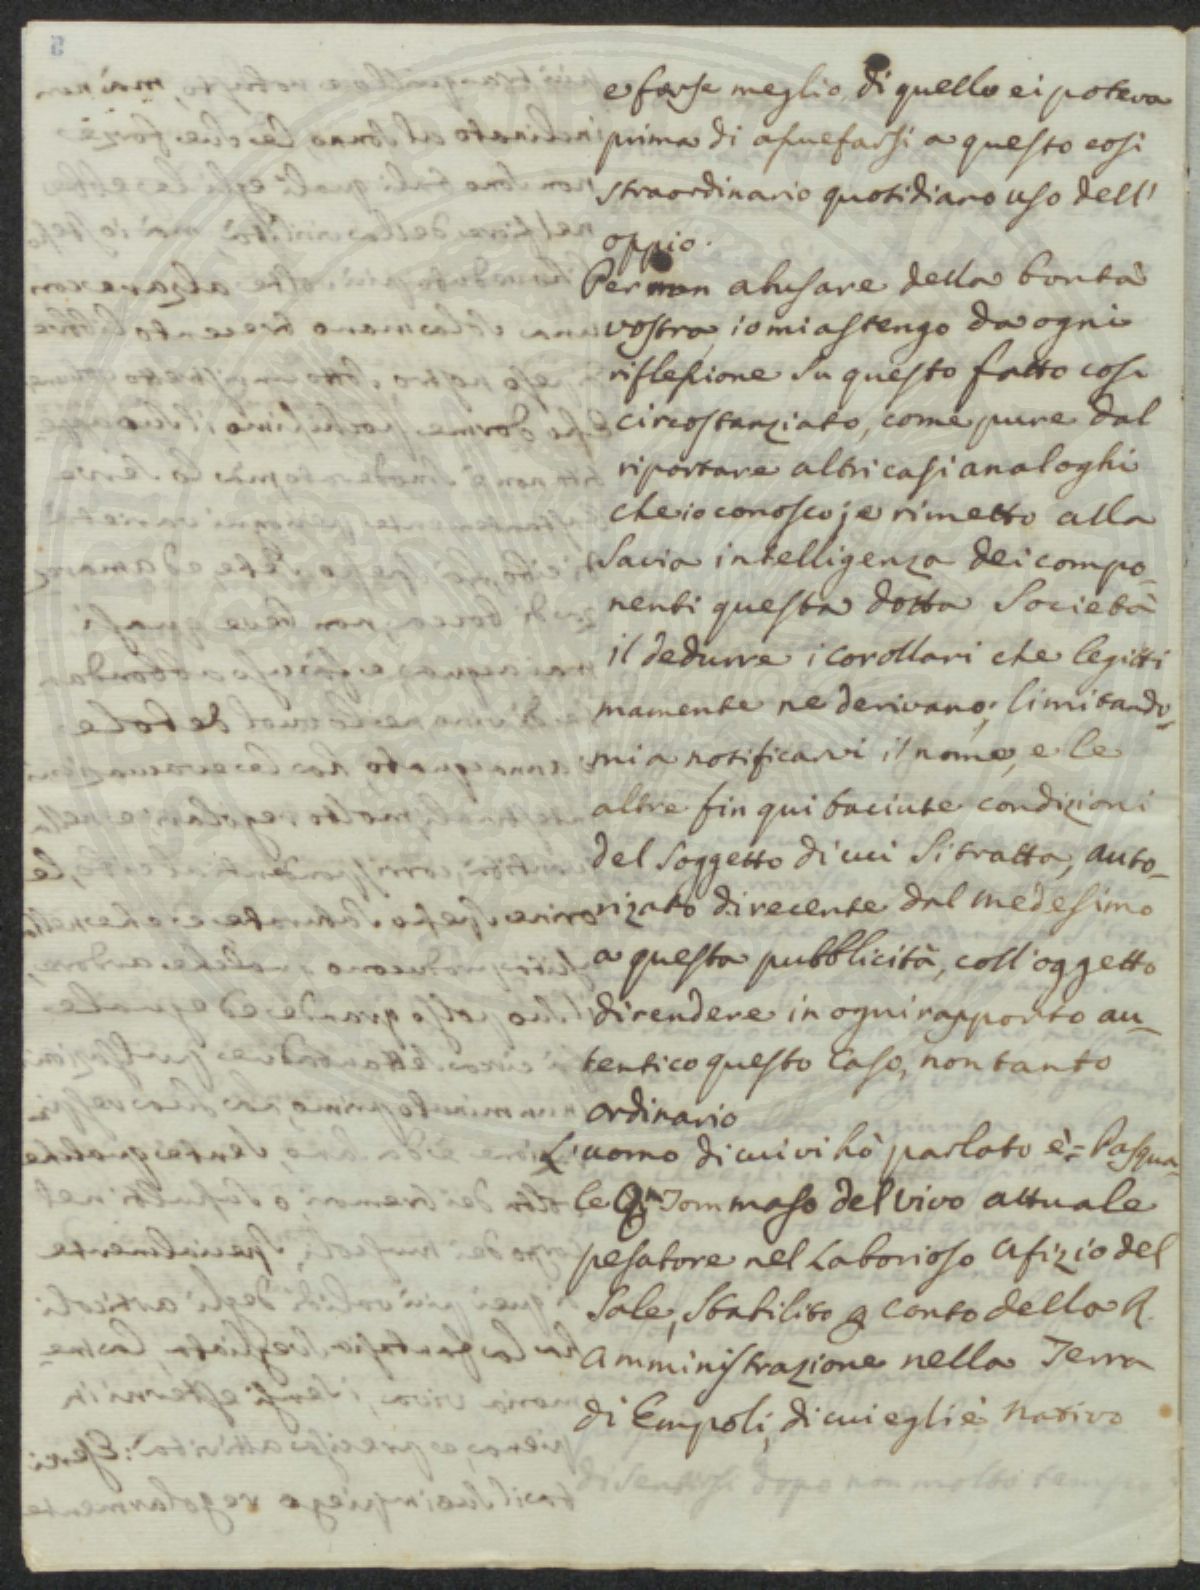 e forse meglio, di quello ei poteva
prima di assuefarsi a questo cosi
straordinario quotidiano uso dell'
oppio.
Per non abusare della bontà
vostra, io mi astengo da ogni
riflessione su questo fatto cosi
circostanziato, come pure dal
riportare altri casi analoghi
che io conosco; e rimetto alla
savia intelligenza dei compo-
nenti questa dotta Società
il dedurre i corollari che legitti
mamente ne derivano; limitando-
mi a notificarvi il nome, e le
altre fin qui taciute condizioni
del Soggetto di cui si tratta, auto-
rizato di recente dal medesimo
a questa pubblicità, coll'oggetto
di rendere in ogni rapporto au-
tentico questo Caso, non tanto
ordinario
L'uomo di cui vi hò parlato è = Pasqua-
le Tommaso del Vivo attuale
pesatore nel Laborioso Ufizio del
Sale, Stabilito conto della R.
Amministrazione nella Terra
di Empoli, di cui egli è nativo